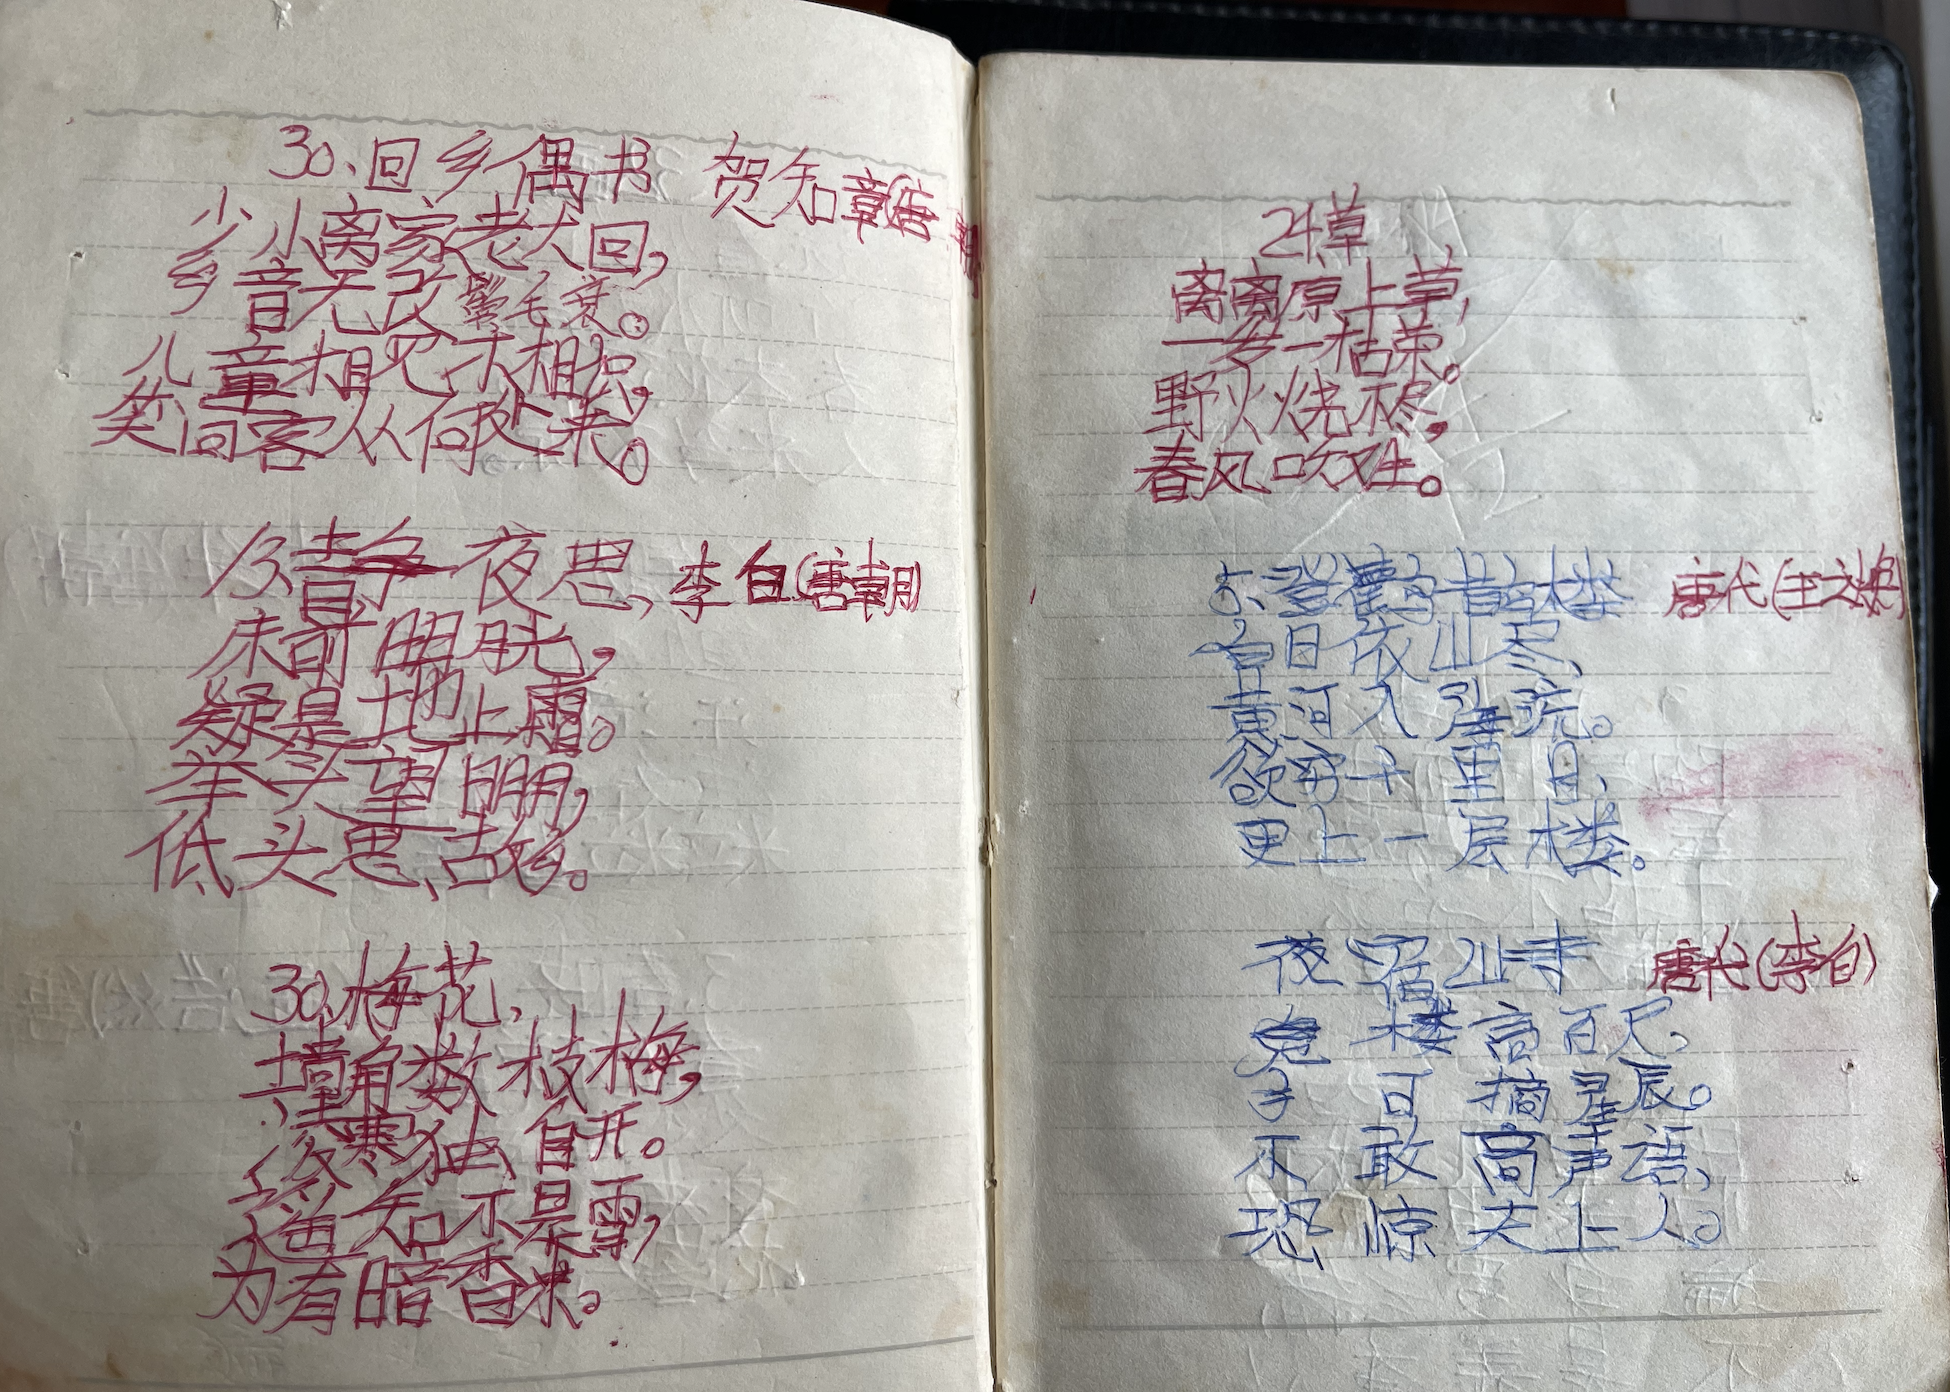 30、回乡偶书 贺知章(唐朝
少小离家老大回,
乡音无改鬓毛衰。
儿童相见不相识,
笑问客从何处来。
静夜思, 李白(唐朝)
床前明月光,
疑是地上霜。
举头望明月,
低头思故乡。
30、梅花、
墙角数枝梅,
凌寒独自开。
遥知不是雪,
为有暗香来。
21草
离离原上草,
一岁一枯荣。
野火烧不尽,
春风吹又生。
5、登鹳雀楼 唐代(王之涣)
白日依山尽、
黄河入海流。
欲穷千里目、
更上一层楼。
夜宿山寺 唐代(李白)
危楼高百尺、
手可摘星辰。
不敢高声语、
恐惊天上人。